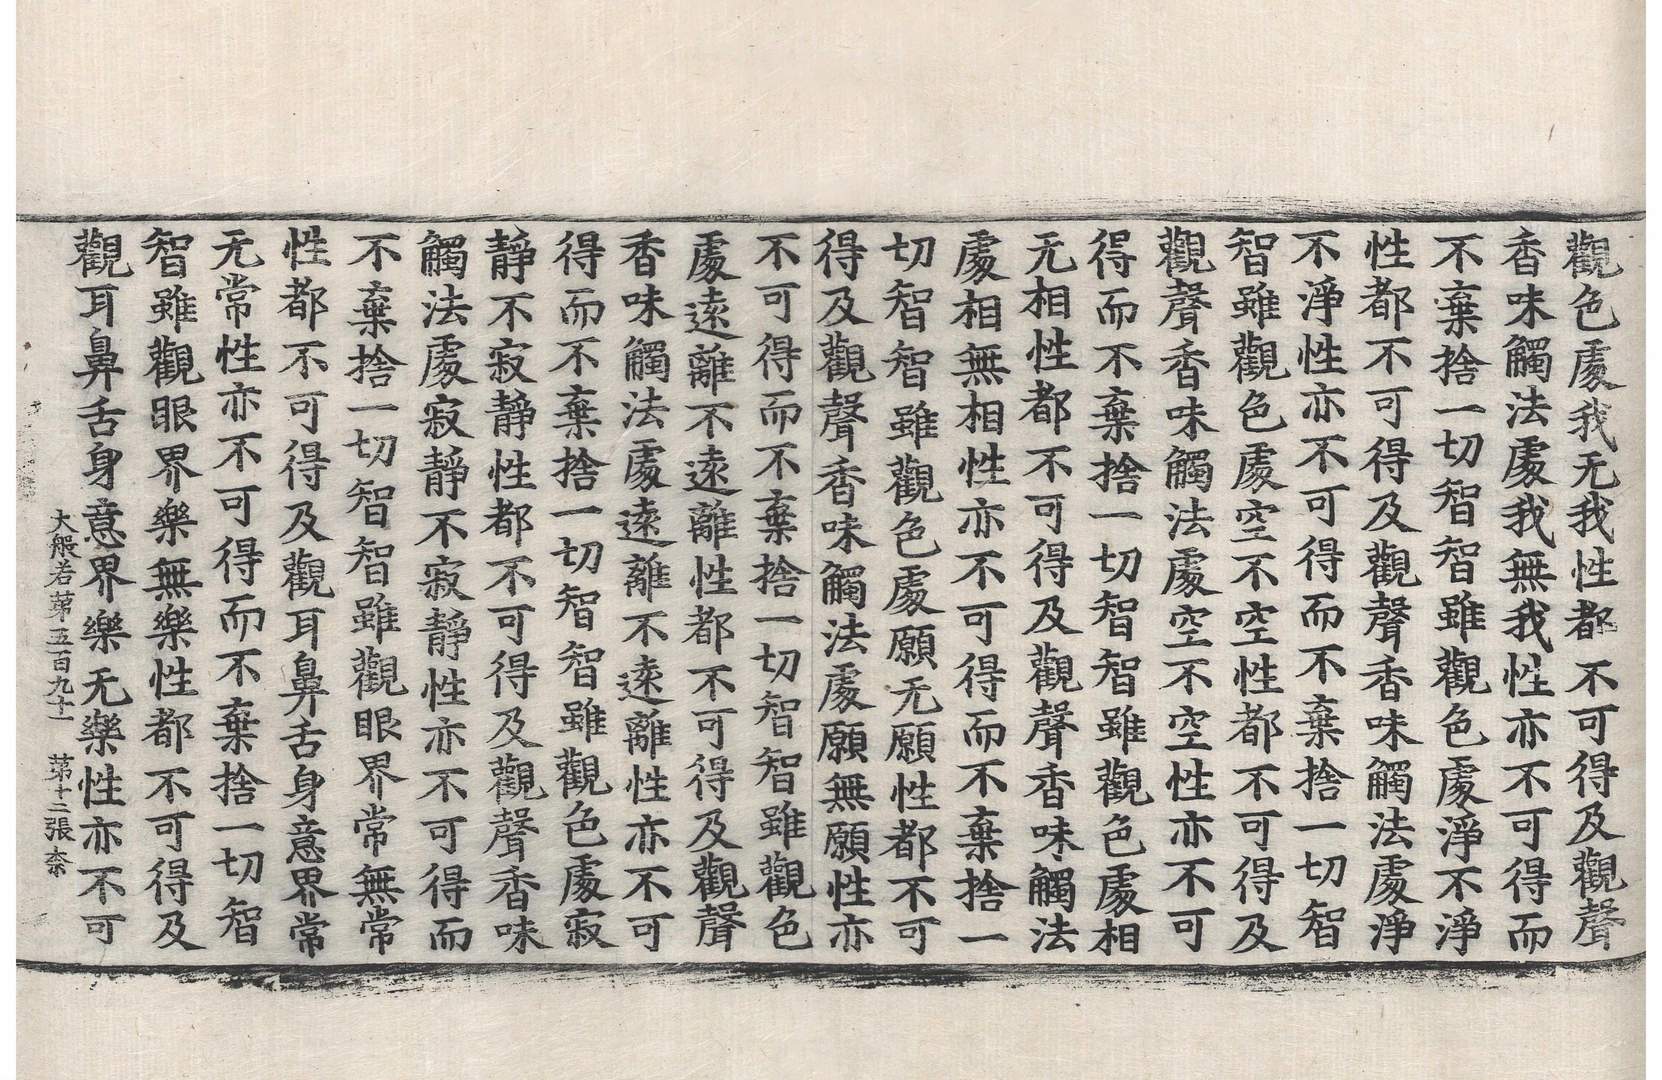 觀色處我无我性都不可得及觀聲
香味觸法處我無我性亦不可得而
不棄捨一切智智雖觀色處淨不淨
性都不可得及觀聲香味觸法處淨
不淨性亦不可得而不棄捨一切智
智雖觀色處空不空性都不可得及
觀聲香味觸法處空不空性亦不可
得而不棄捨一切智智雖觀色處相
无相性都不可得及觀聲香味觸法
處相無相性亦不可得而不棄捨一
切智智雖觀色處願无願性都不可
得及觀聲香味觸法處願無願性亦
不可得而不棄捨一切智智雖觀色
處遠離不遠離性都不可得及觀聲
香味觸法處遠離不遠離性亦不可
得而不棄捨一切智智雖觀色處寂
靜不寂靜性都不可得及觀聲香味
觸法處寂靜不寂靜性亦不可得而
不棄捨一切智智雖觀眼界常無常
性都不可得及觀耳鼻舌身意界常
无常性亦不可得而不棄捨一切智
智雖觀眼界樂無樂性都不可得及
觀耳鼻舌身意界樂无樂性亦不可
大般若第五百九十一 第十二張柰